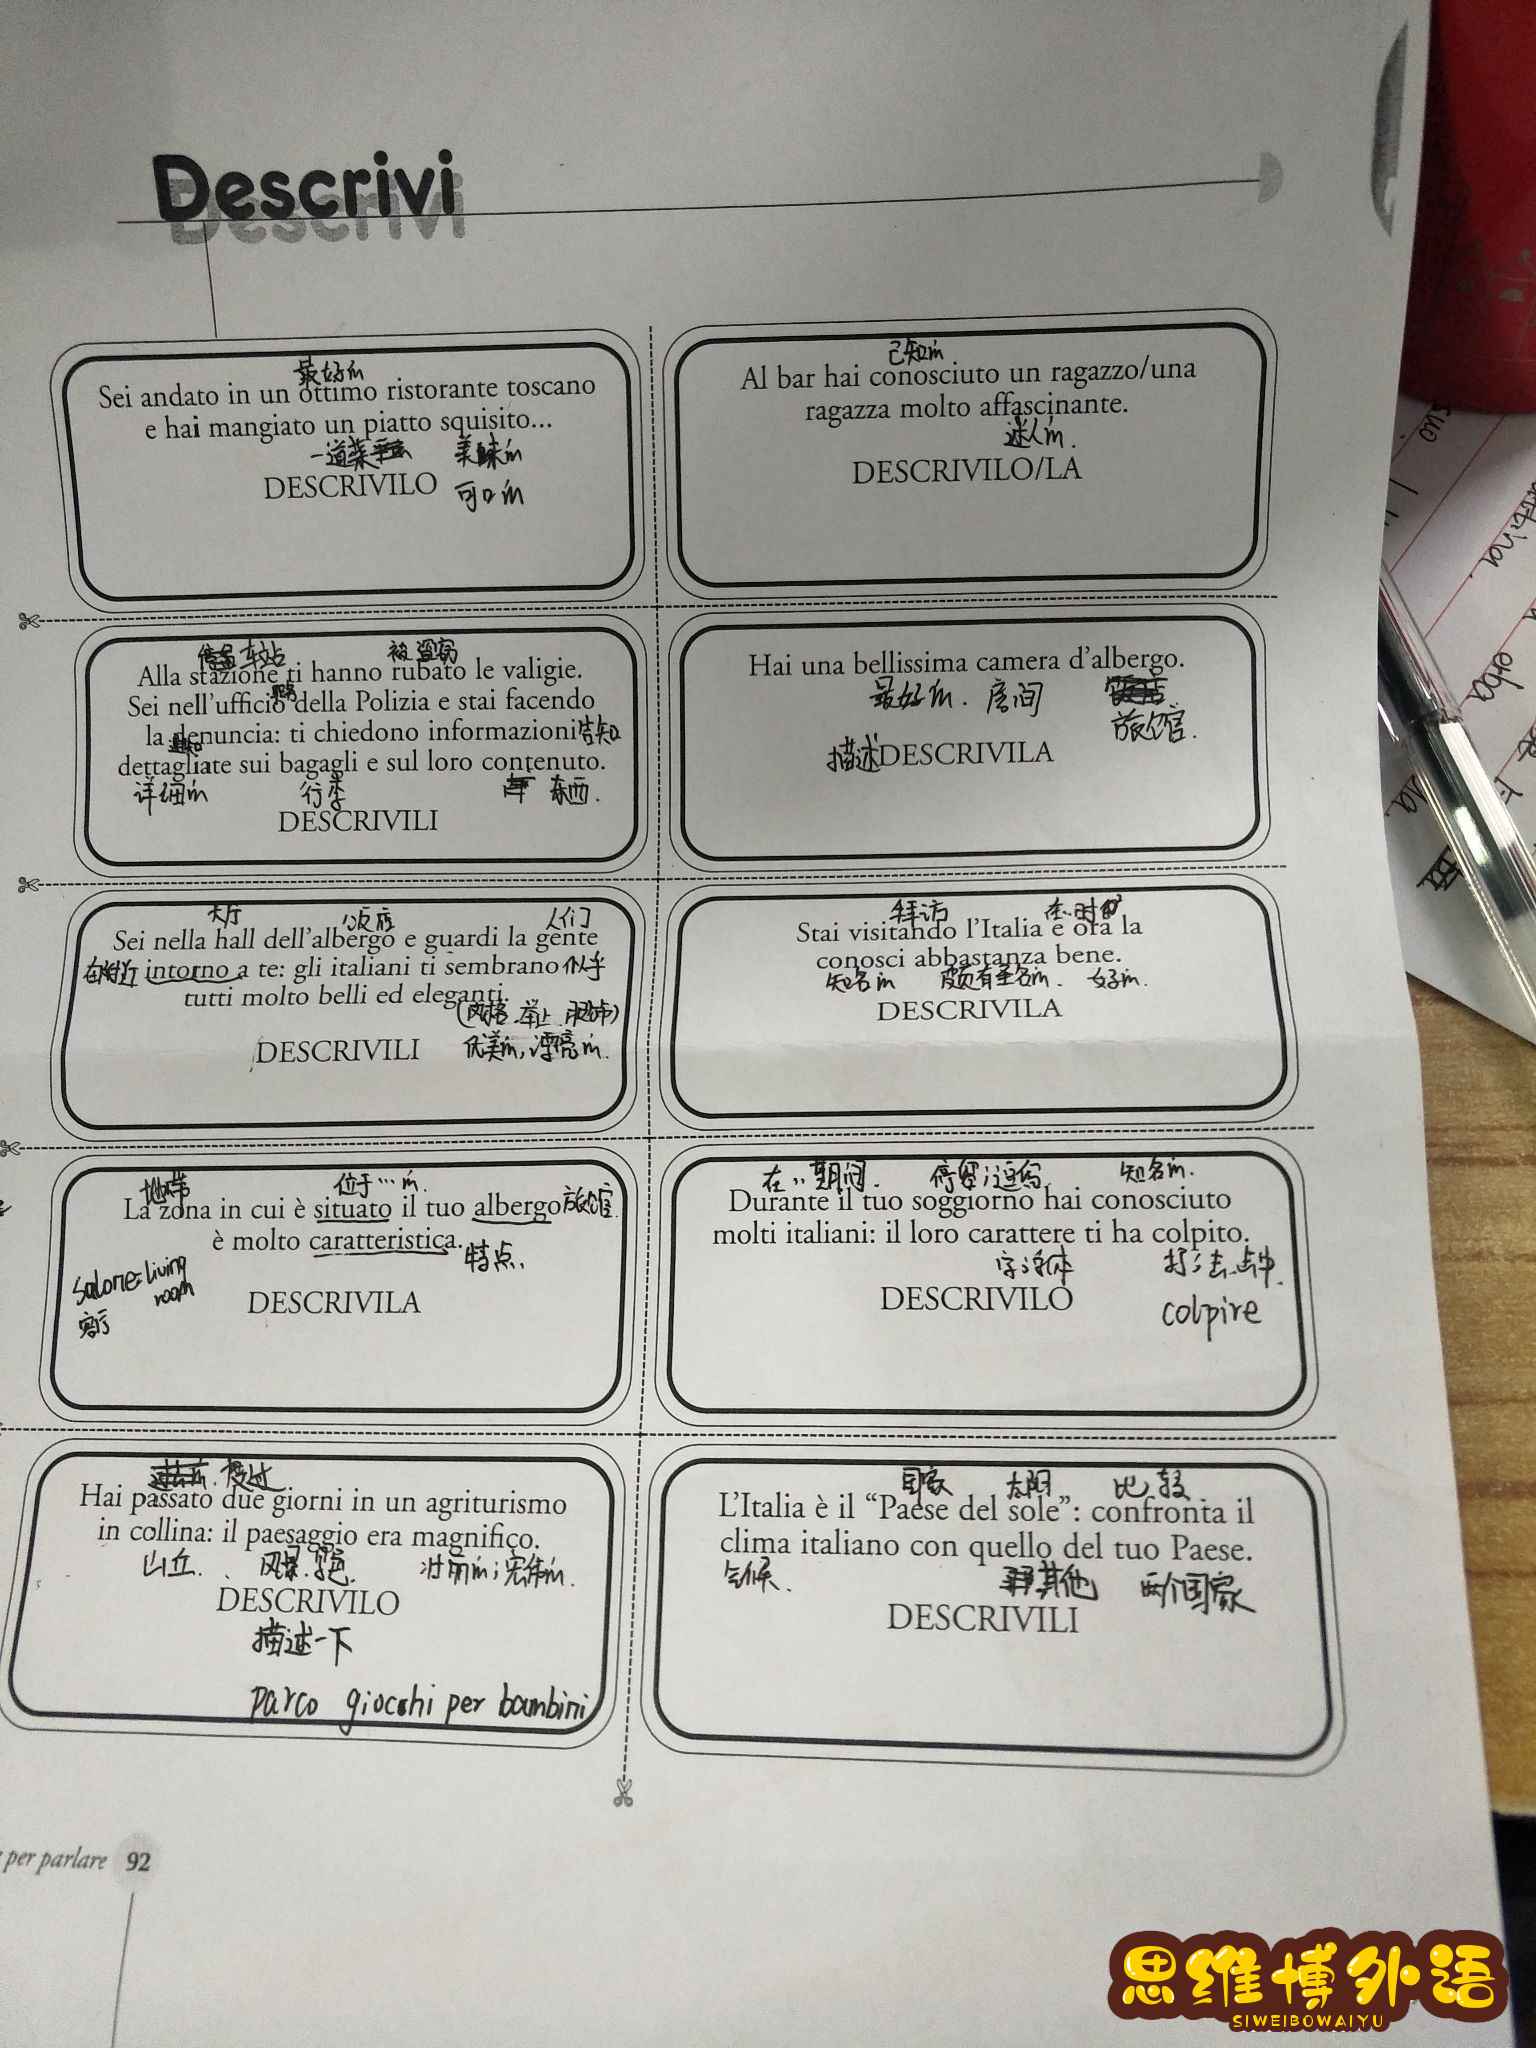 Descrivi
最好的
Sei andato in un ottimo ristorante toscano
e hai mangiato un piatto squisito...
一道菜 美味的
DESCRIVILO 可口的
已知的
Al bar hai conosciuto un ragazzo/una
ragazza molto affascinante.
迷人的.
DESCRIVILO/LA
车站 被盗窃
Alla stazione ti hanno rubato le valigie.
Sei nell'ufficio della Polizia e stai facendo
la denuncia: ti chiedono informazioni 告知
dettagliate sui bagagli e sul loro contenuto.
详细的 行李 东西.
DESCRIVILI
Hai una bellissima camera d'albergo.
最好的. 房间
旅馆.
描述 DESCRIVILA
大厅 饭店 人们
Sei nella hall dell'albergo e guardi la gente
在附近 intorno a te: gli italiani ti sembrano 似乎
tutti molto belli ed eleganti.
(风格.举止.服饰)
DESCRIVILI 优美的,漂亮的.
拜访 在..时间
Stai visitando l'Italia e ora la
conosci abbastanza bene.
知名的 颇有至名的. 好的.
DESCRIVILA
地带 位于...的.
La zona in cui è situato il tuo albergo 旅馆.
è molto caratteristica.
特点.
salone=living
room
客厅
DESCRIVILA
在..期间 停留;逗留 知名的.
Durante il tuo soggiorno hai conosciuto
molti italiani: il loro carattere ti ha colpito.
打击.击中.
DESCRIVILO
colpire
度过
Hai passato due giorni in un agriturismo
in collina: il paesaggio era magnifico.
山丘. 风景.景色. 壮丽的;宏伟的.
DESCRIVILO
描述一下
parco giocchi per bambini
国家 太阳 比较
L'Italia è il “Paese del sole”: confronta il
clima italiano con quello del tuo Paese.
气候. 其他 两个国家
DESCRIVILI
per parlare 92
erba
思维博外语
SIWEIBOWAIYU